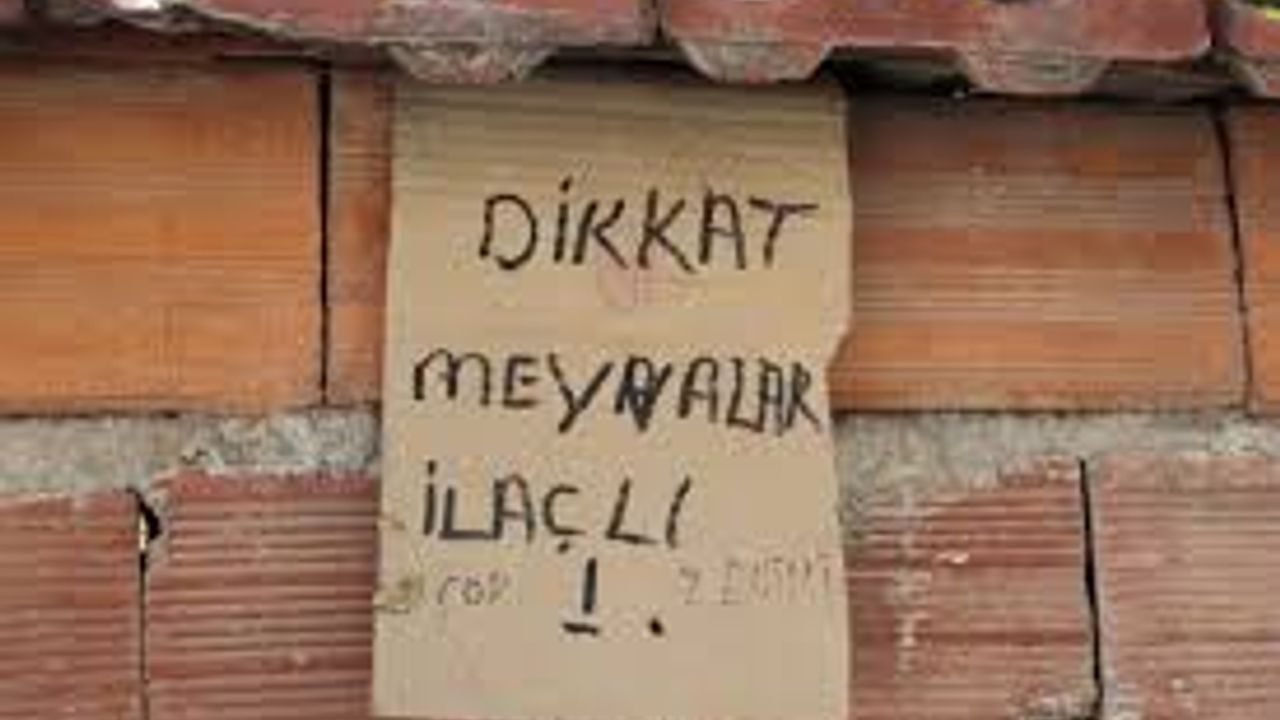 DİKKAT
MEYVALAR
İLAÇLI
! .